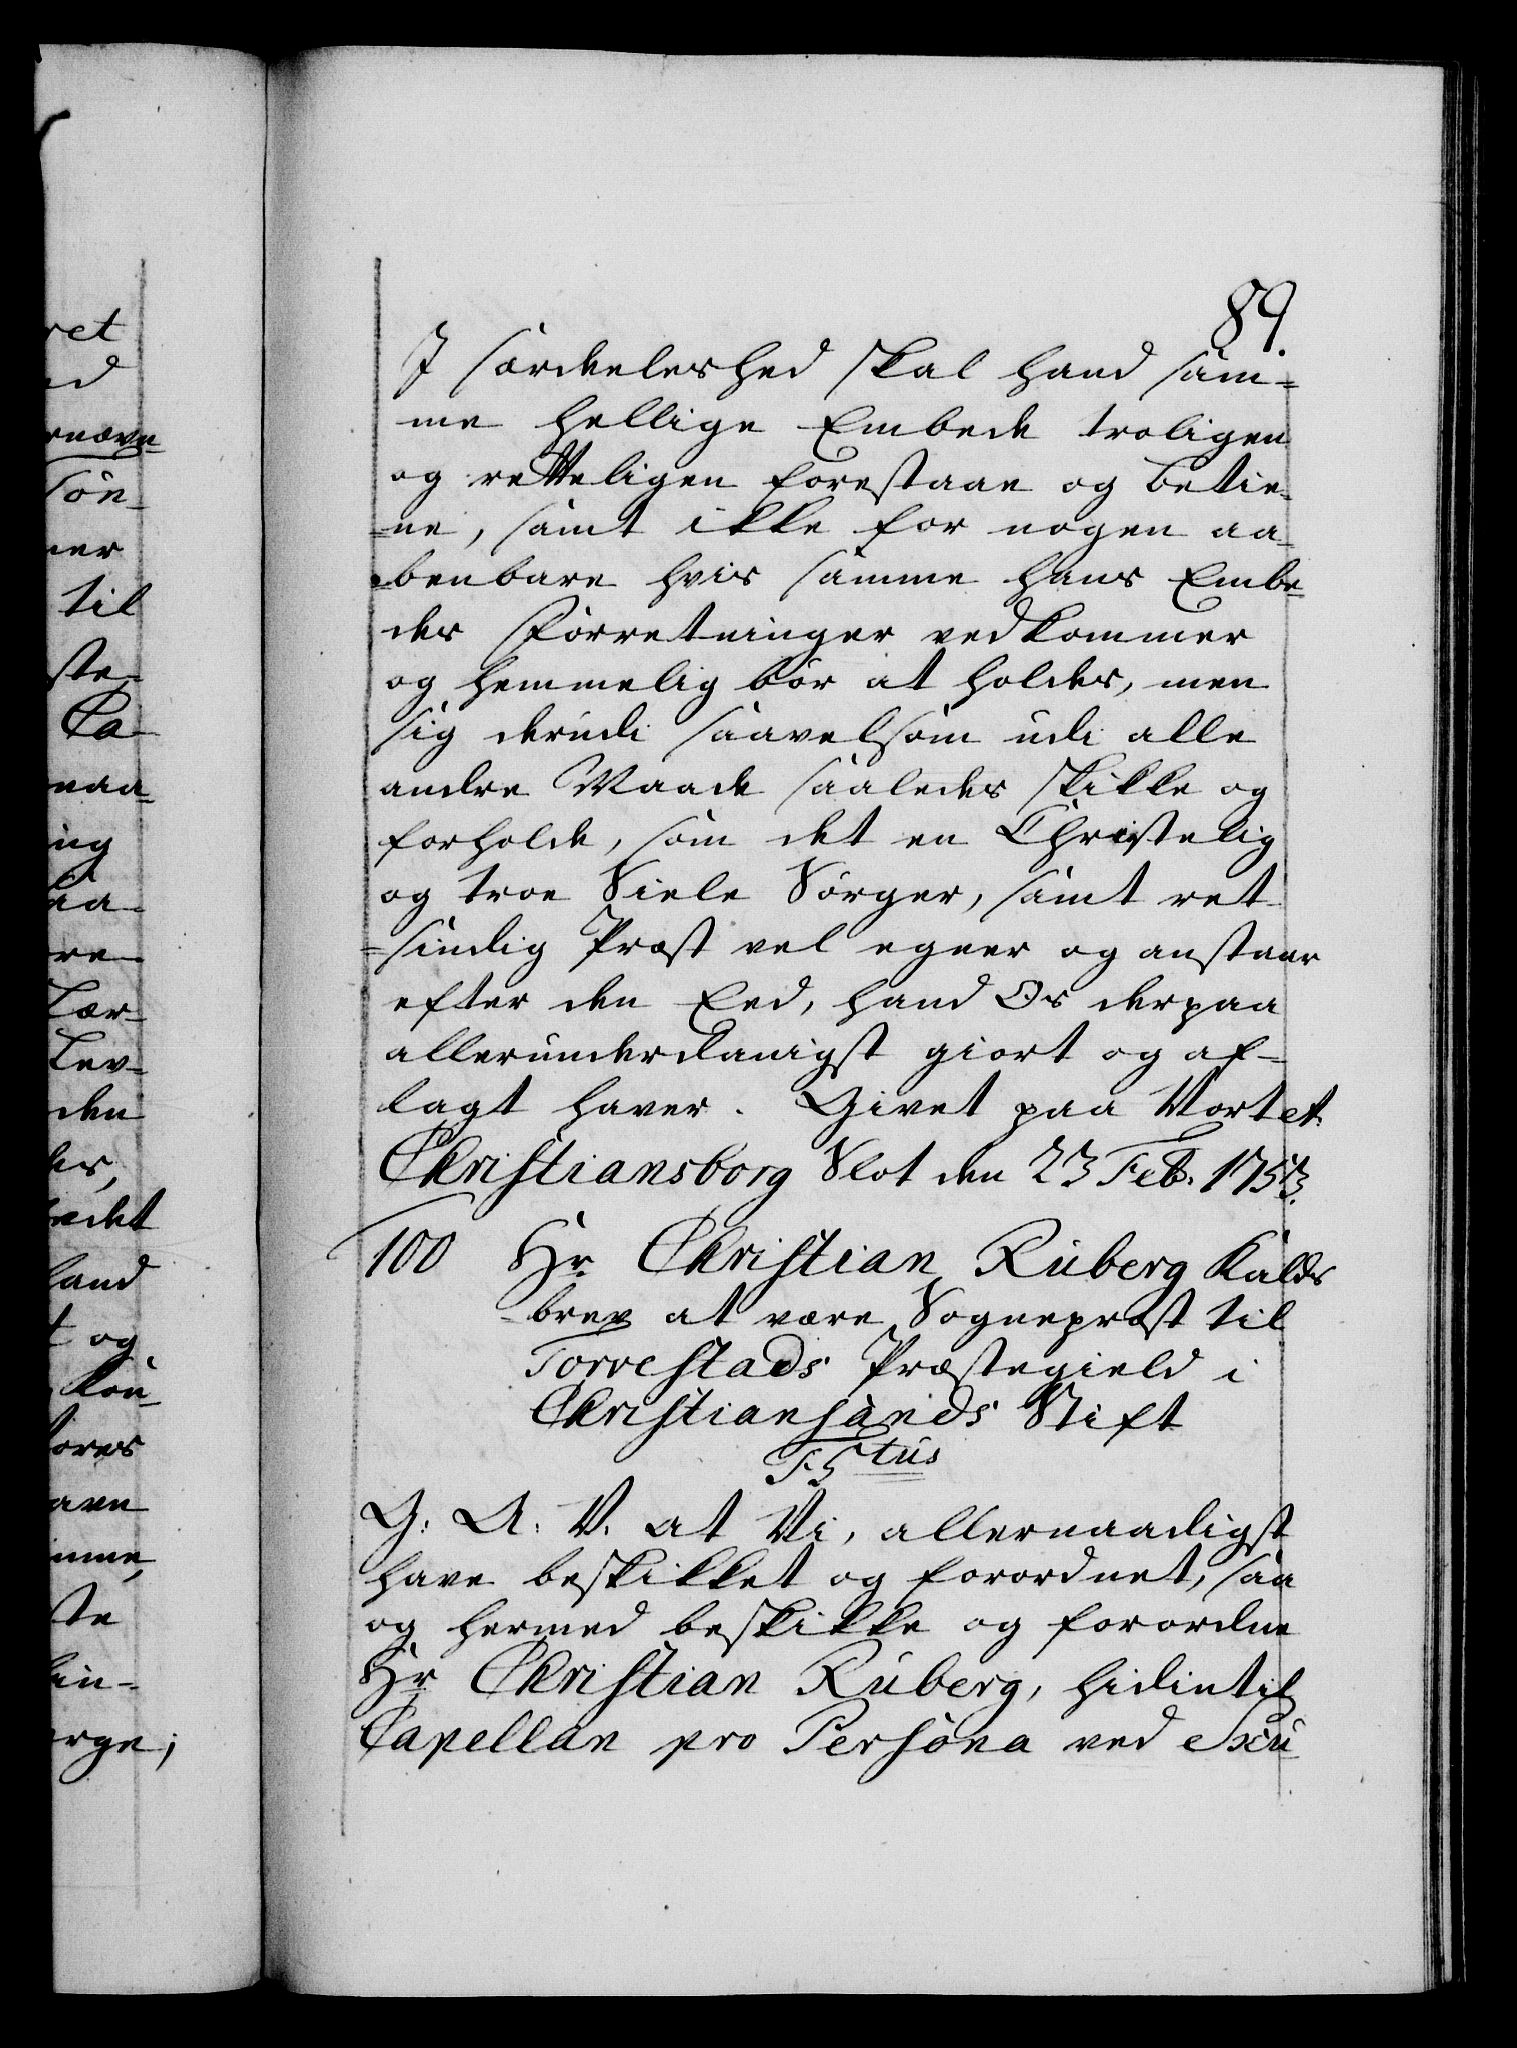 89.
I særdeleshed skal hand sam-
me hellige Embede troligen
og retteligen forestaae og betie-
-ne, samt ikke for nogen aa-
-benbare hvis samme hans Embe-
des Forretninger vedkommer
og hemmelig bör at holdes, men
sig derudi saavelsom udi alle
andre Maade saaledes skikke og
forholde, som det en Christelig
og troe Siele Sörger, samt ret-
-sindig Præst vel egner og anstaar
efter den Eed, hand Os derpaa
allerunderdanigst giort og af-
lagt haver. Givet paa Vortet
Christiansborg Slot den 23 Feb. 1753.
100 Hr. Christian Ruberg Kalds
-brev at være Sognepræst til
Torvestads Præstegield i
Christiansands Stift
F. 5tus
G: A: V. at Vi, allernaadigst
have beskikket og forordnet, saa
og hermed beskikke og forordne
Hr Christian Ruberg, hidintil
Capellan pro Persona ved
ret
til
Ca-
naa-
ing
re-
Lær-
Lev-
den
hand
og